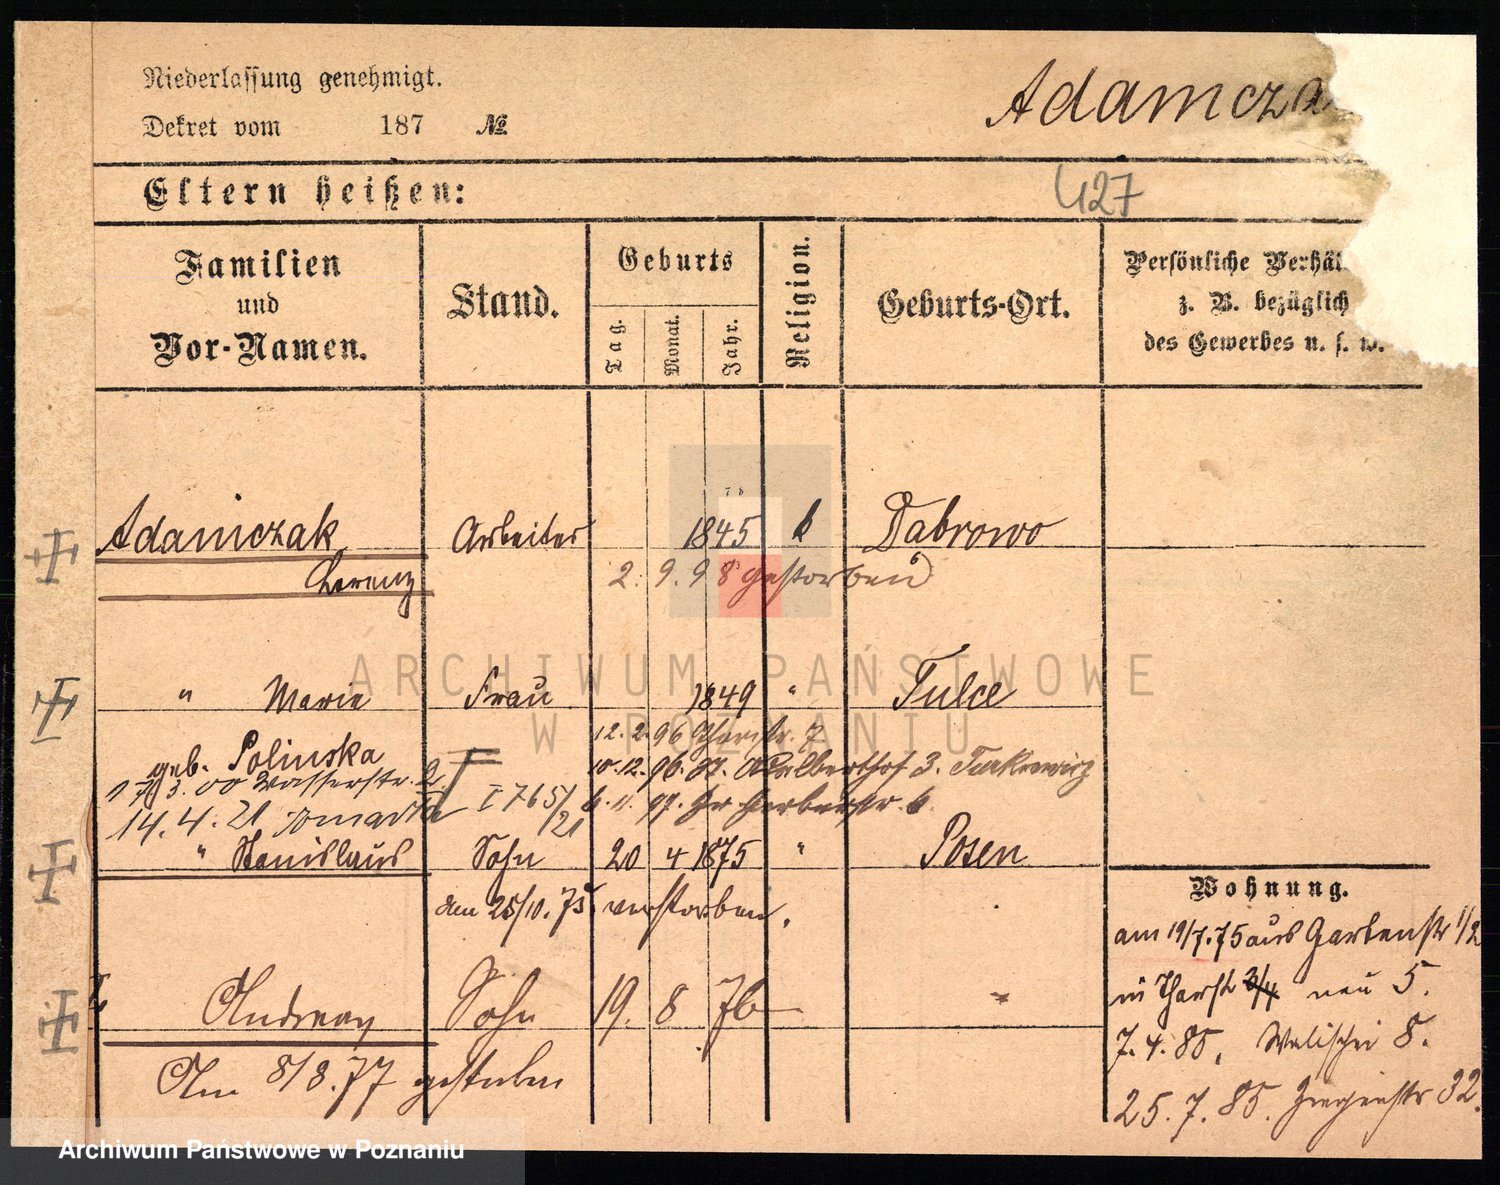 Niederlassung genehmigt.
Adamcza
Dekret vom 187 №
Eltern heißen:
427
Familien und Vor-Namen.
Stand.
Geburts
Tag. Monat. Jahr.
Religion.
Geburts-Ort.
Persönliche Verhäl
z. B. bezüglich
des Gewerbes u. s. w.
Adamczak Arbeiter 1845 k Dabrowo
Lorenz 2. 9. 98 gestorben
" Marie Frau 1849 " Tulce
geb. Polinska 12. 2. 96 Thorstr. 7
10. 12. 96. Adalberthof 3. Turkiewicz
17/3. 00 Wasserstr. 2 I 765/21 6. 11. 97. Gr Gerberstr. 6.
14. 4. 21
" Stanislaus Sohn 20 4 1875 " Posen
den 25/10. 75. verstorben.
Andreas Sohn 19. 8 76
Am 8/8. 77 gestorben
Wohnung.
am 19/7. 75 aus Gartenstr 1/2
in Thorstr 3/4 neu 5.
7. 4. 85. Wallischei 8.
25. 7. 85. Ziegenstr 32.
ARCHIWUM PAŃSTWOWE
W POZNANIU
Archiwum Państwowe w Poznaniu